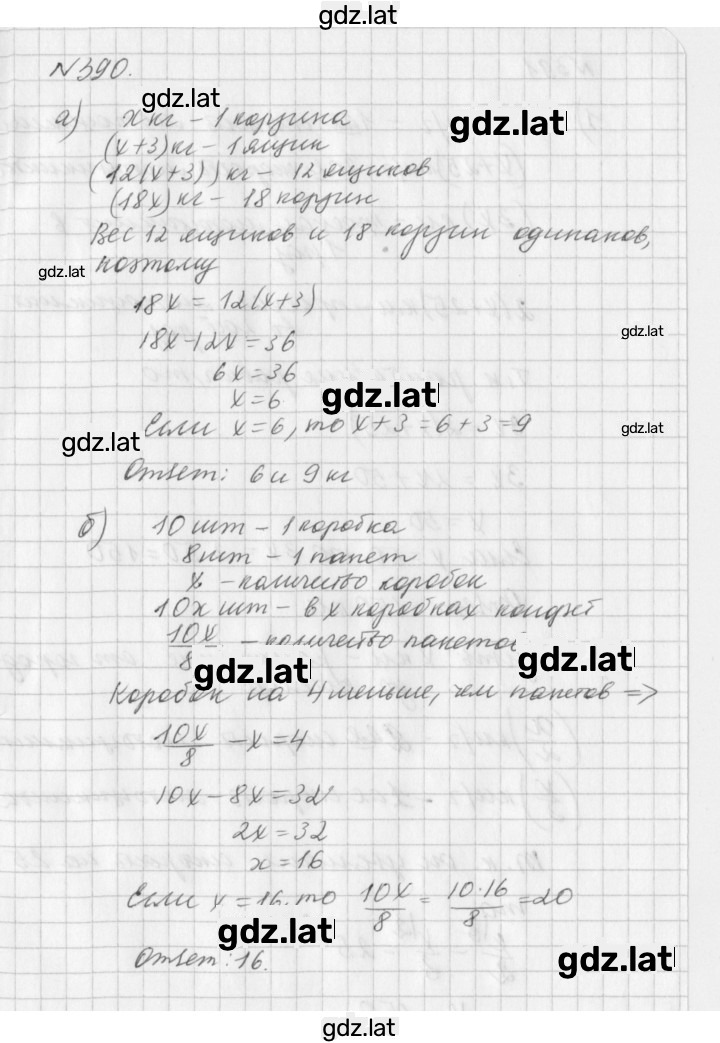 gdz.lat
№390.
gdz.lat
а) х кг – 1 корзина
gdz.lat
(х+3) кг – 1 ящик
(12(х+3)) кг – 12 ящиков
(18х) кг – 18 корзин
Вес 12 ящиков и 18 корзин одинаков,
gdz.lat поэтому
18х = 12(х+3)
gdz.lat
18х-12х=36
6х=36
х=6 gdz.lat
Если х=6, то х+3=6+3=9 gdz.lat
gdz.lat
Ответ: 6 и 9 кг
б) 10 шт – 1 коробка
8 шт – 1 пакет
х – количество коробок
10х шт – в х коробках конфет
10х/8 – количество пакетов
gdz.lat gdz.lat
Коробок на 4 меньше, чем пакетов =>
10х/8 – х = 4
10х – 8х = 32
2х = 32
х = 16
Если х = 16, то 10х/8 = 10·16/8 = 20
gdz.lat
Ответ: 16. gdz.lat
gdz.lat